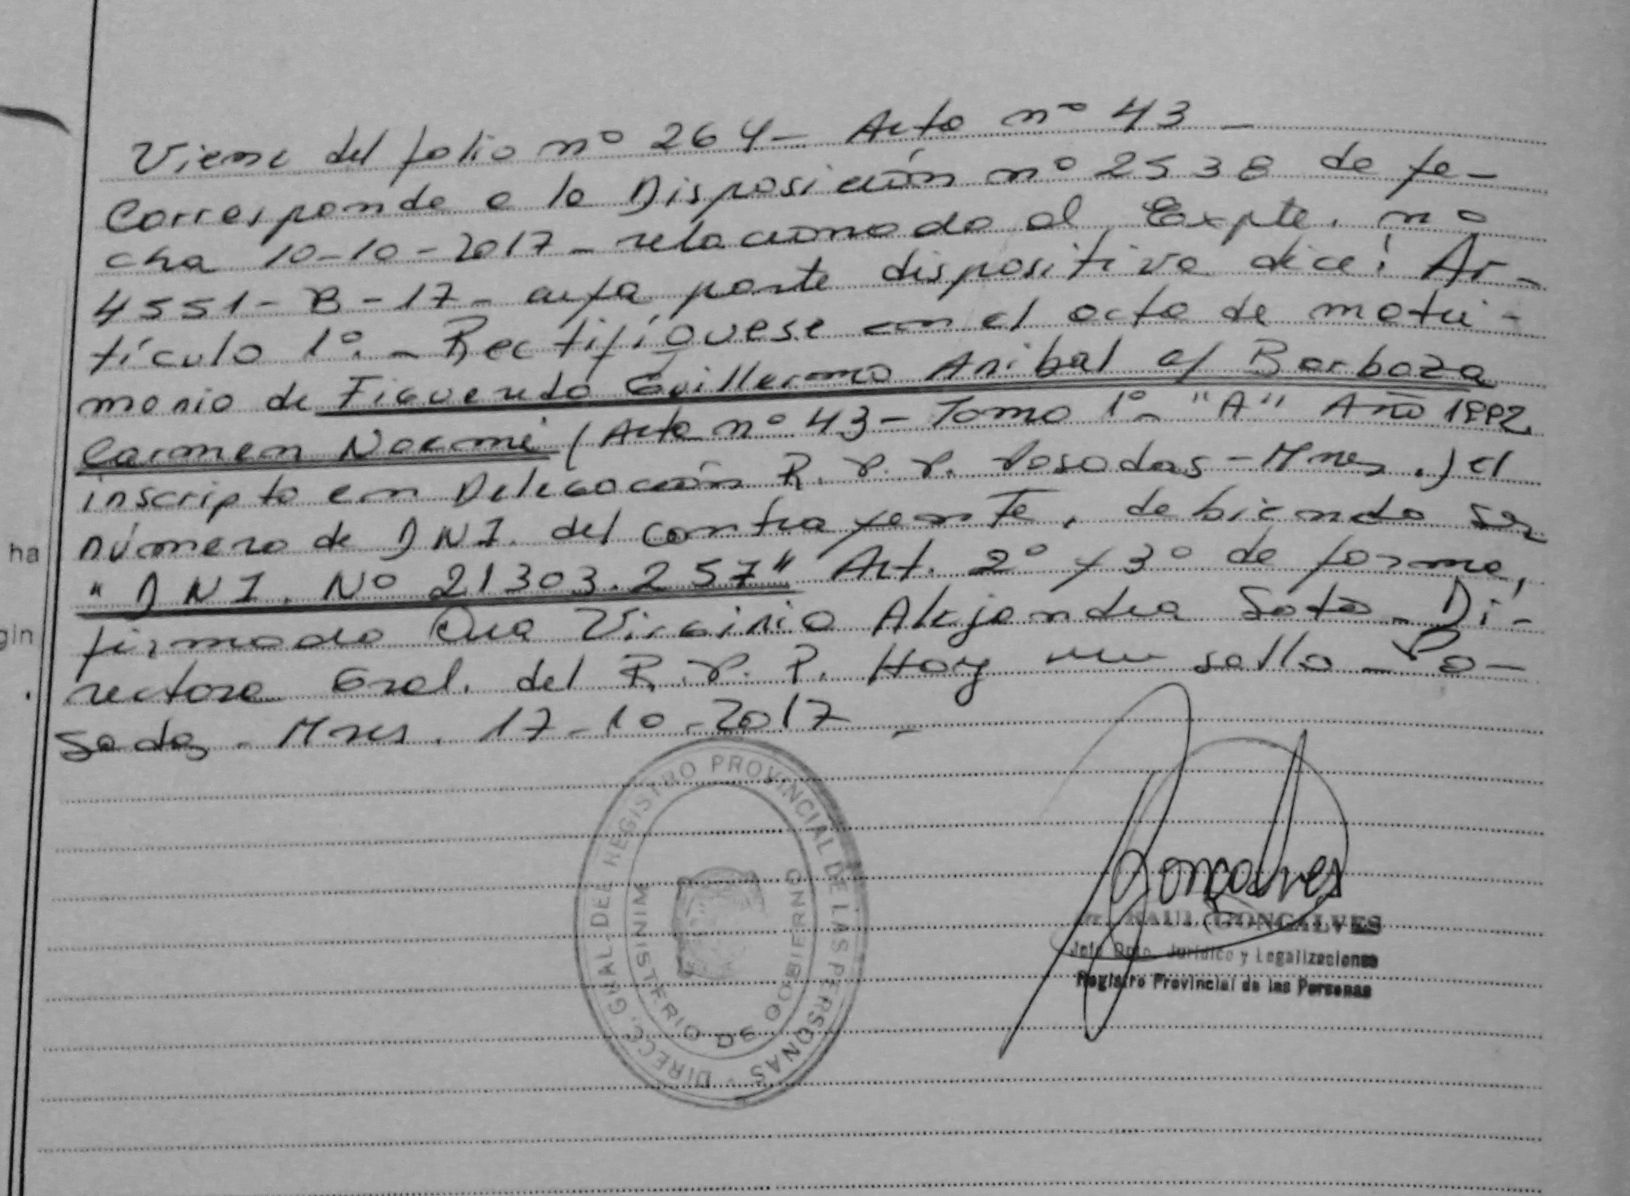 Viene del folio nº 264 - Acta nº 43 -
Corresponde a la Disposición nº 2538 de fe-
cha 10-10-2017 - relacionado al Expte. nº
4551-B-17 - cuya parte dispositiva dice: Ar-
tículo 1º. - Rectifíquese en el acta de matri-
monio de Figueredo Guillermo Anibal c/ Barboza
Carmen Noemi (Acta nº 43 - Tomo 1º - "A" Año 1992
inscripto en Delegación R. P. P. Posadas - Mnes.) el
número de DNI. del contrayente, debiendo ser
"DNI. Nº 21303.257" Art. 2º y 3º de forma,
firmado Dra Virginia Alejandra Soto - Di-
rectora Gral. del R. P. P. Hay un sello - Po-
sadas - Mnes. 17-10-2017 -
ha
gin
DIRECC. GRAL. DEL REGISTRO PROVINCIAL DE LAS PERSONAS
MINISTERIO DE GOBIERNO
Gonçalves
RAUL GONCALVES
Jefe Dpto. Jurídico y Legalizaciones
Registro Provincial de las Personas